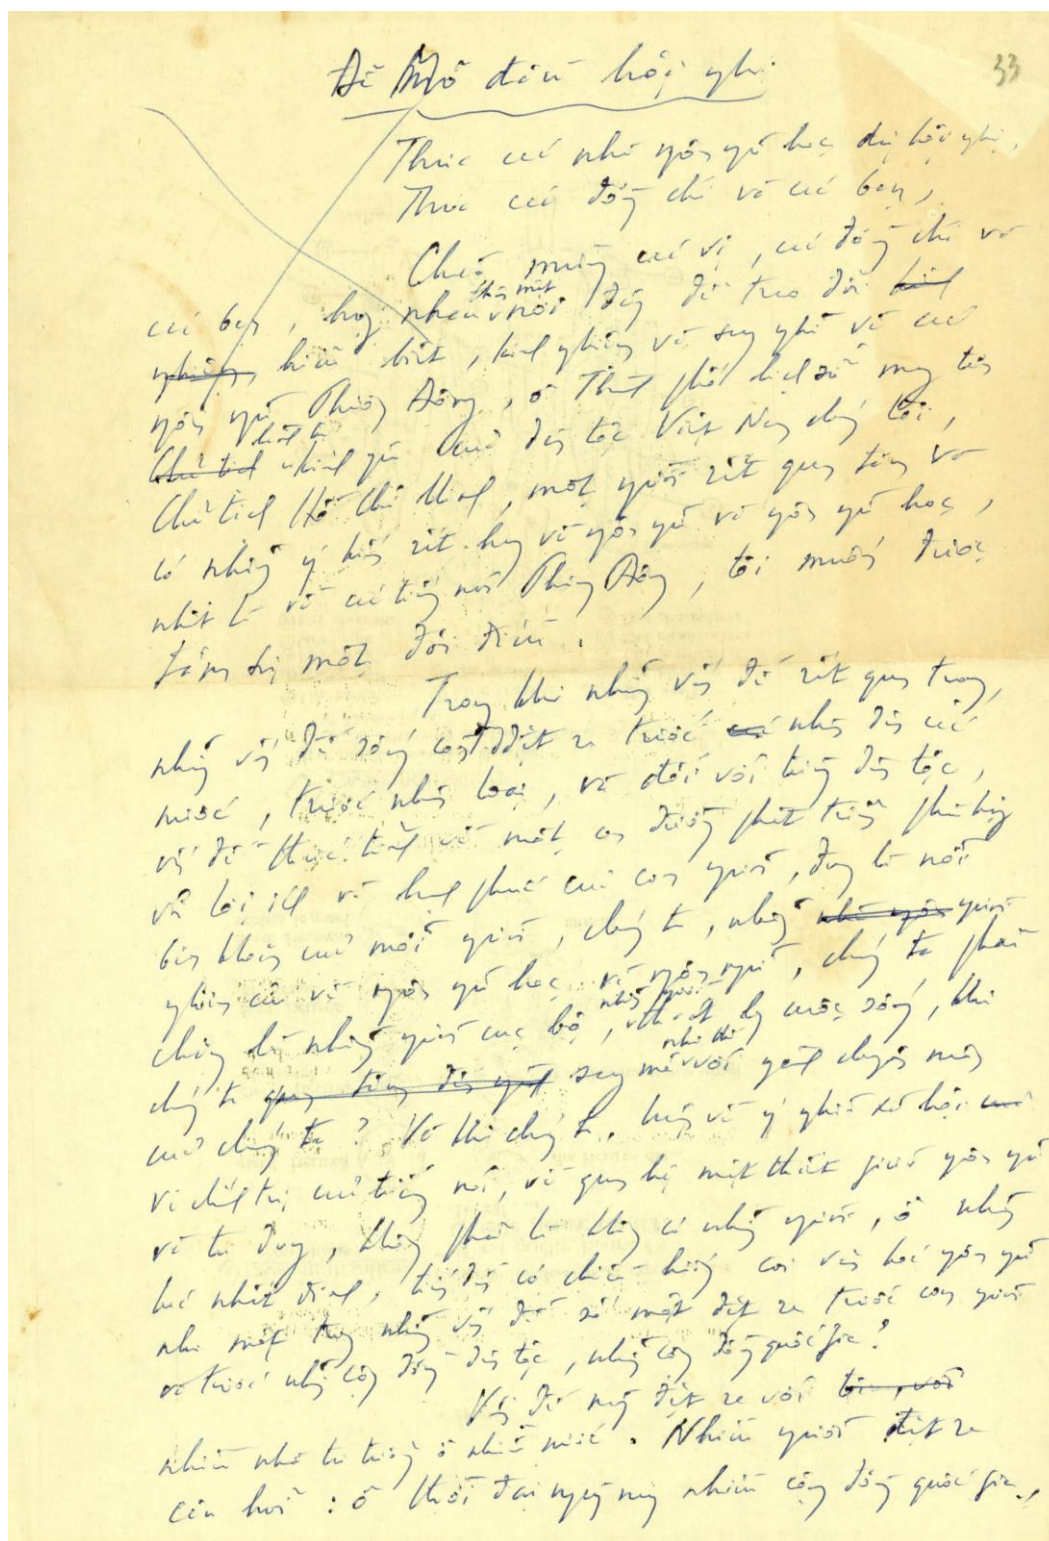 Để Mở đầu hội nghị
33
Thưa các nhà ngôn ngữ học dự hội nghị,
Thưa các đồng chí và các bạn,
Chào mừng các vị, các đồng chí và
các bạn, họp nhau thân mật nơi đây để trao đổi kinh
nghiệm hiểu biết, kinh nghiệm và suy nghĩ về các
ngôn ngữ Phương Đông, ở Thành phố lịch sử mang tên
Chủ tịch lãnh tụ kính yêu của dân tộc Việt Nam chúng tôi,
Chủ tịch Hồ Chí Minh, một người rất quan tâm và
có những ý kiến rất hay về ngôn ngữ và ngôn ngữ học,
nhất là về các tiếng nói Phương Đông, tôi muốn được
tâm sự một đôi điều.
Trong khi những vấn đề rất quan trọng,
những vấn đề sống còn đặt ra trước các nhân dân các
nước, trước nhân loại, và đối với từng dân tộc,
vấn đề thực tiễn về một con đường phát triển phù hợp
với lợi ích và hạnh phúc của con người, đang là nỗi
băn khoăn của mỗi người, chúng ta, những nhà ngôn người
nghiên cứu về ngôn ngữ học và ngôn ngữ, chúng ta phải
chăng là những người cục bộ, những người thoát ly cuộc sống, khi
chúng ta quan tâm say mê như thế với ngành chuyên môn
của chúng ta? Và khi chúng ta, hiểu về ý nghĩa xã hội
và chính trị của tiếng nói, về quan hệ mật thiết giữa ngôn ngữ
và tư duy, không phải là không có những người, ở những
lúc nhất định, có chiều hướng coi vấn đề ngôn ngữ
như một trong những vấn đề số một đặt ra trước con người
và trước những cộng đồng dân tộc, những cộng đồng quốc gia?
Vấn đề này đặt ra với tôi, với
nhiều nhà tư tưởng ở nhiều nước. Nhiều người đặt ra
câu hỏi: ở thời đại ngày nay nhiều cộng đồng quốc gia,